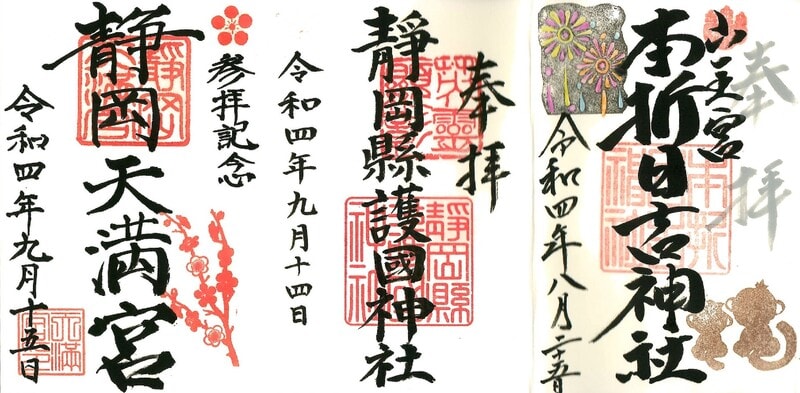 参拝記念
静岡天満宮
令和四年九月十五日
奉拝
靜岡縣護國神社
令和四年九月十四日
奉拝
山王宮
本折日吉神社
令和四年八月二十五日
靜岡縣